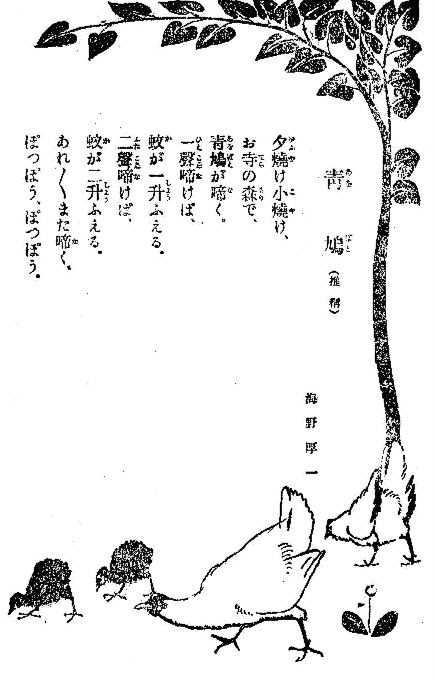 青鳩（推稱）
海野厚一
夕燒け小燒け、
お寺の森で、
青鳩が啼く。
一聲啼けば、
蚊が一升ふえる。
二聲啼けば、
蚊が二升ふえる。
あれ〳〵また啼く、
ぽつぽう、ぽつぽう。